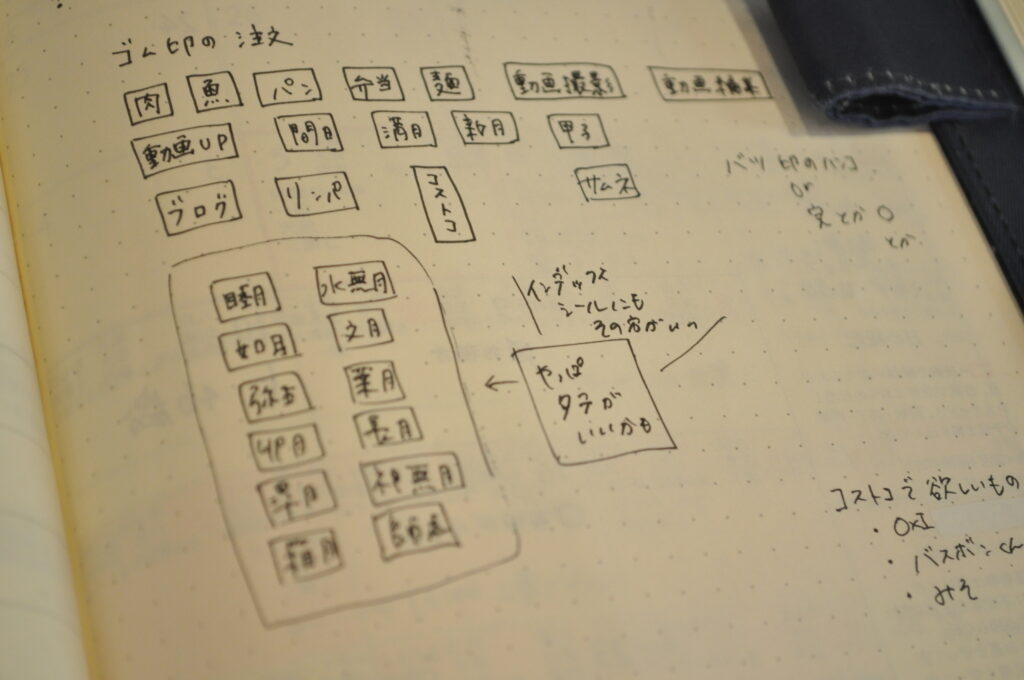 ゴム印の注文
肉 魚 パン 弁当 麺 動画撮影 動画編集
動画UP 間日 満月 新月 甲子
ブログ リンパ コストコ サムネ
バツ印のハンコ
or
とか○
とか
睦月 水無月
如月 文月
弥生 葉月
卯月 長月
皐月 神無月
師走
インデックス
シールにも
その方がいい
やっぱ
タテが
いいかも
コストコで欲しいもの
・OXI
・バスボンくん
・みそ